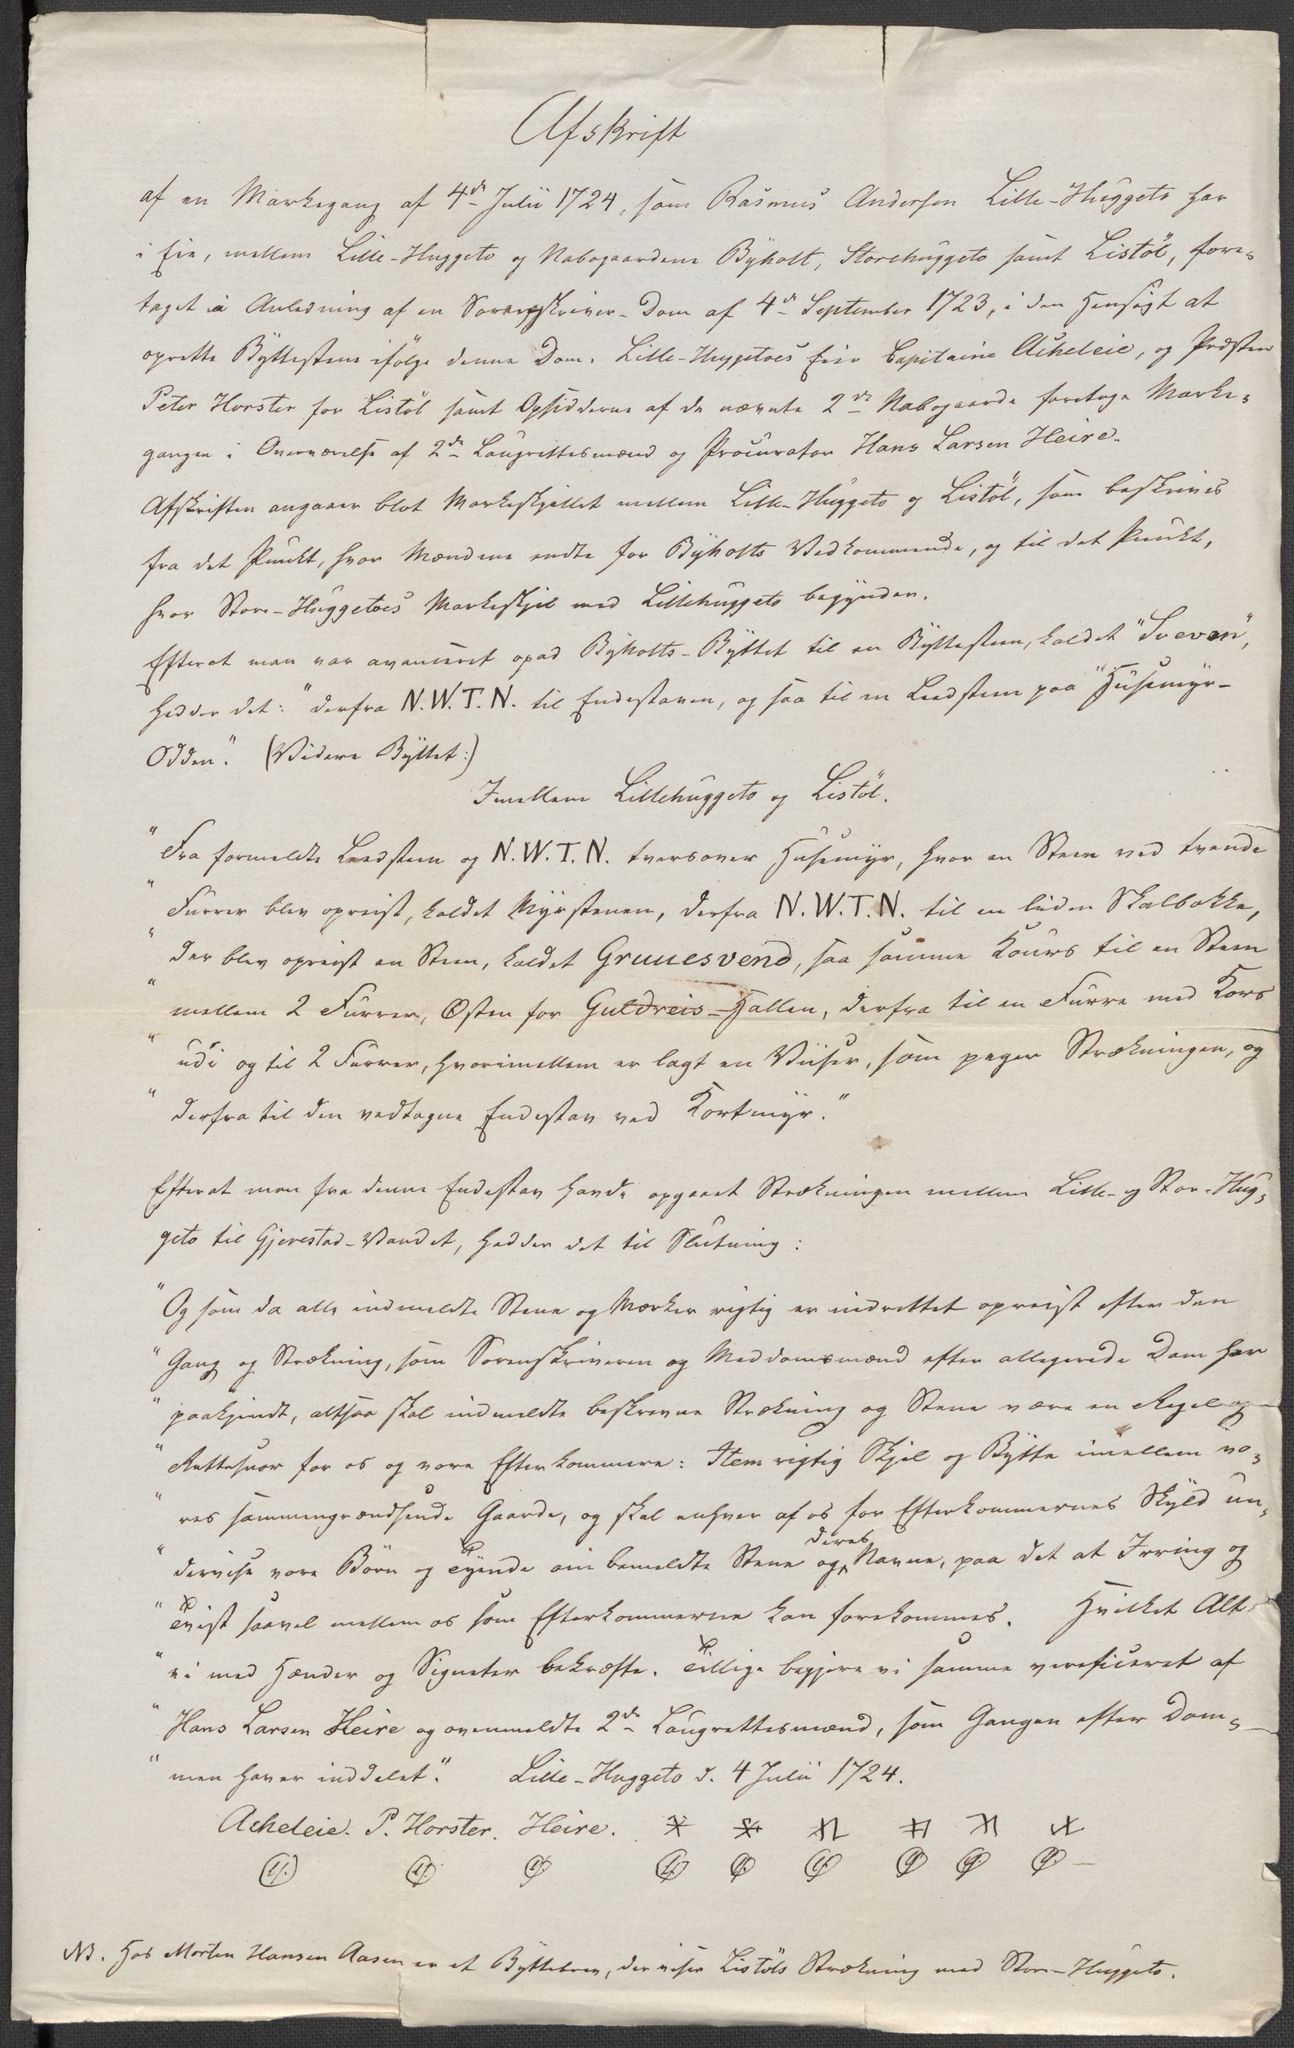 Afskrift
af en Markegang af 4de Julii 1724, som Rasmus Andersen Lille-Huggeto har
i Eie, mellem Lille-Huggeto og Nabogaardene Byholt, Storehuggeto samt Listöl, fore-
taget i Anledning af en Sorenskriver-Dom af 4de September 1723, i den Hensigt at
oprette Byttestene ifölge denne Dom. Lille-Huggetoes Eier Capitaine Acheleie, og Præsten
Peter Horster for Listöl samt Opsidderne af de nævnte 2de Nabogaarde foretoge Marke-
gangen i Overværelse af 2de Laugrettesmænd og Procurator Hans Larsen Heire.
Afskriften angaaer blot Markeskjellet mellem Lille-Huggeto og Listöl, som beskrives
fra det Punkt, hvor Mændene endte for Byholts Vedkommende, og til det Punkt,
hvor Store-Huggetoes Markeskjel med Lillehuggeto begynder.
Efterat man var avanceret opad Byholts-Byttet til en Byttesteen, kaldet "Sveven",
hedder det: "derfra N.W.T.N. til Endestaven, og saa til en Leedsteen paa "Husemyr-
Odden". (Videre Byttet:)
Imellem Lillehuggeto og Listöl.
" Fra formeldte Leedsteen og N.W.T.N. tversover Husemyr, hvor en Steen ved tvende
" Furrer blev opreist, kaldet Myrstenen, derfra N.W.T.N. til en liden Skalbakke,
" der blev opreist en Steen, kaldet Gruuesvend, saa samme Kours til en Steen
" mellem 2 Furrer, Østen for Guldreis-Hallen, derfra til en Furre med Kors
" udi og til 2 Furrer, hvorimellem er lagt en Viiser, som peger Strækningen, og
" derfra til den vedtagne Endestav ved Kortmyr."
Efterat man fra denne Endestav havde opgaaet Strækningen mellem Lille- og Stor-Hug-
geto til Gjerestad-Vandet, hedder det til Slutning:
" Og som da alle indmeldte Stene og Mærker rigtig er indrettet opreist efter den
" Gang og Strækning, som Sorenskriveren og Meddomsmænd efter allegerede Dom har
" paakjendt, altsaa skal indmeldte beskrevne Strækning og Stene være en Regel og
" Rettesnor for os og vore Efterkommere: Item rigtig Skjel og Bytte imellem vo-
" res sammengrændsende Gaarde, og skal enhver af os for Efterkommernes Skyld un-
" dervise vore Börn og Tyende om bemeldte Stene og deres Navne, paa det at Irring og
" Tvist saavel mellem os som Efterkommerne kan forekommes. Hvilket Alt
" vi med Hænder og Signeter bekræfte. Tillige begjere vi samme verificeret af
" Hans Larsen Heire og ovenmeldte 2de Laugrettesmænd, som Gangen efter Dom-
" men haver inddelet". Lille-Huggeto d. 4 Julii 1724.
Acheleie. P. Horster. Heire.
NB. Hos Morten Hansen Aasen er et Byttebrev, der viser Listöls Strækning med Store-Huggeto.